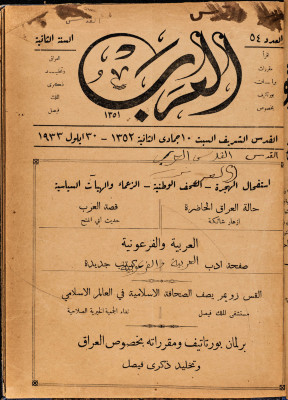 القدس
العدد ٥٤
السنة الثانية
العرب
١٣٥١
القدس الشريف السبت ١٠ جمادى الثانية ١٣٥٢ - ٣٠ ايلول ١٩٣٣
القدس القدس
استفحال الهجرة - الصحف الوطنية - الزعماء والهيآت السياسية
حالة العراق الحاضرة
قصد العرب
العربية والفرعونية
صفحة ادب جديدة
القس زويمر يصف الصحافة الاسلامية في العالم الاسلامي
مستشفى الملك فيصل
نداء الجمعية الخيرية الصلاحية
برلمان بورتاتيف ومقرراته بخصوص العراق
وتخليد ذكرى فيصل